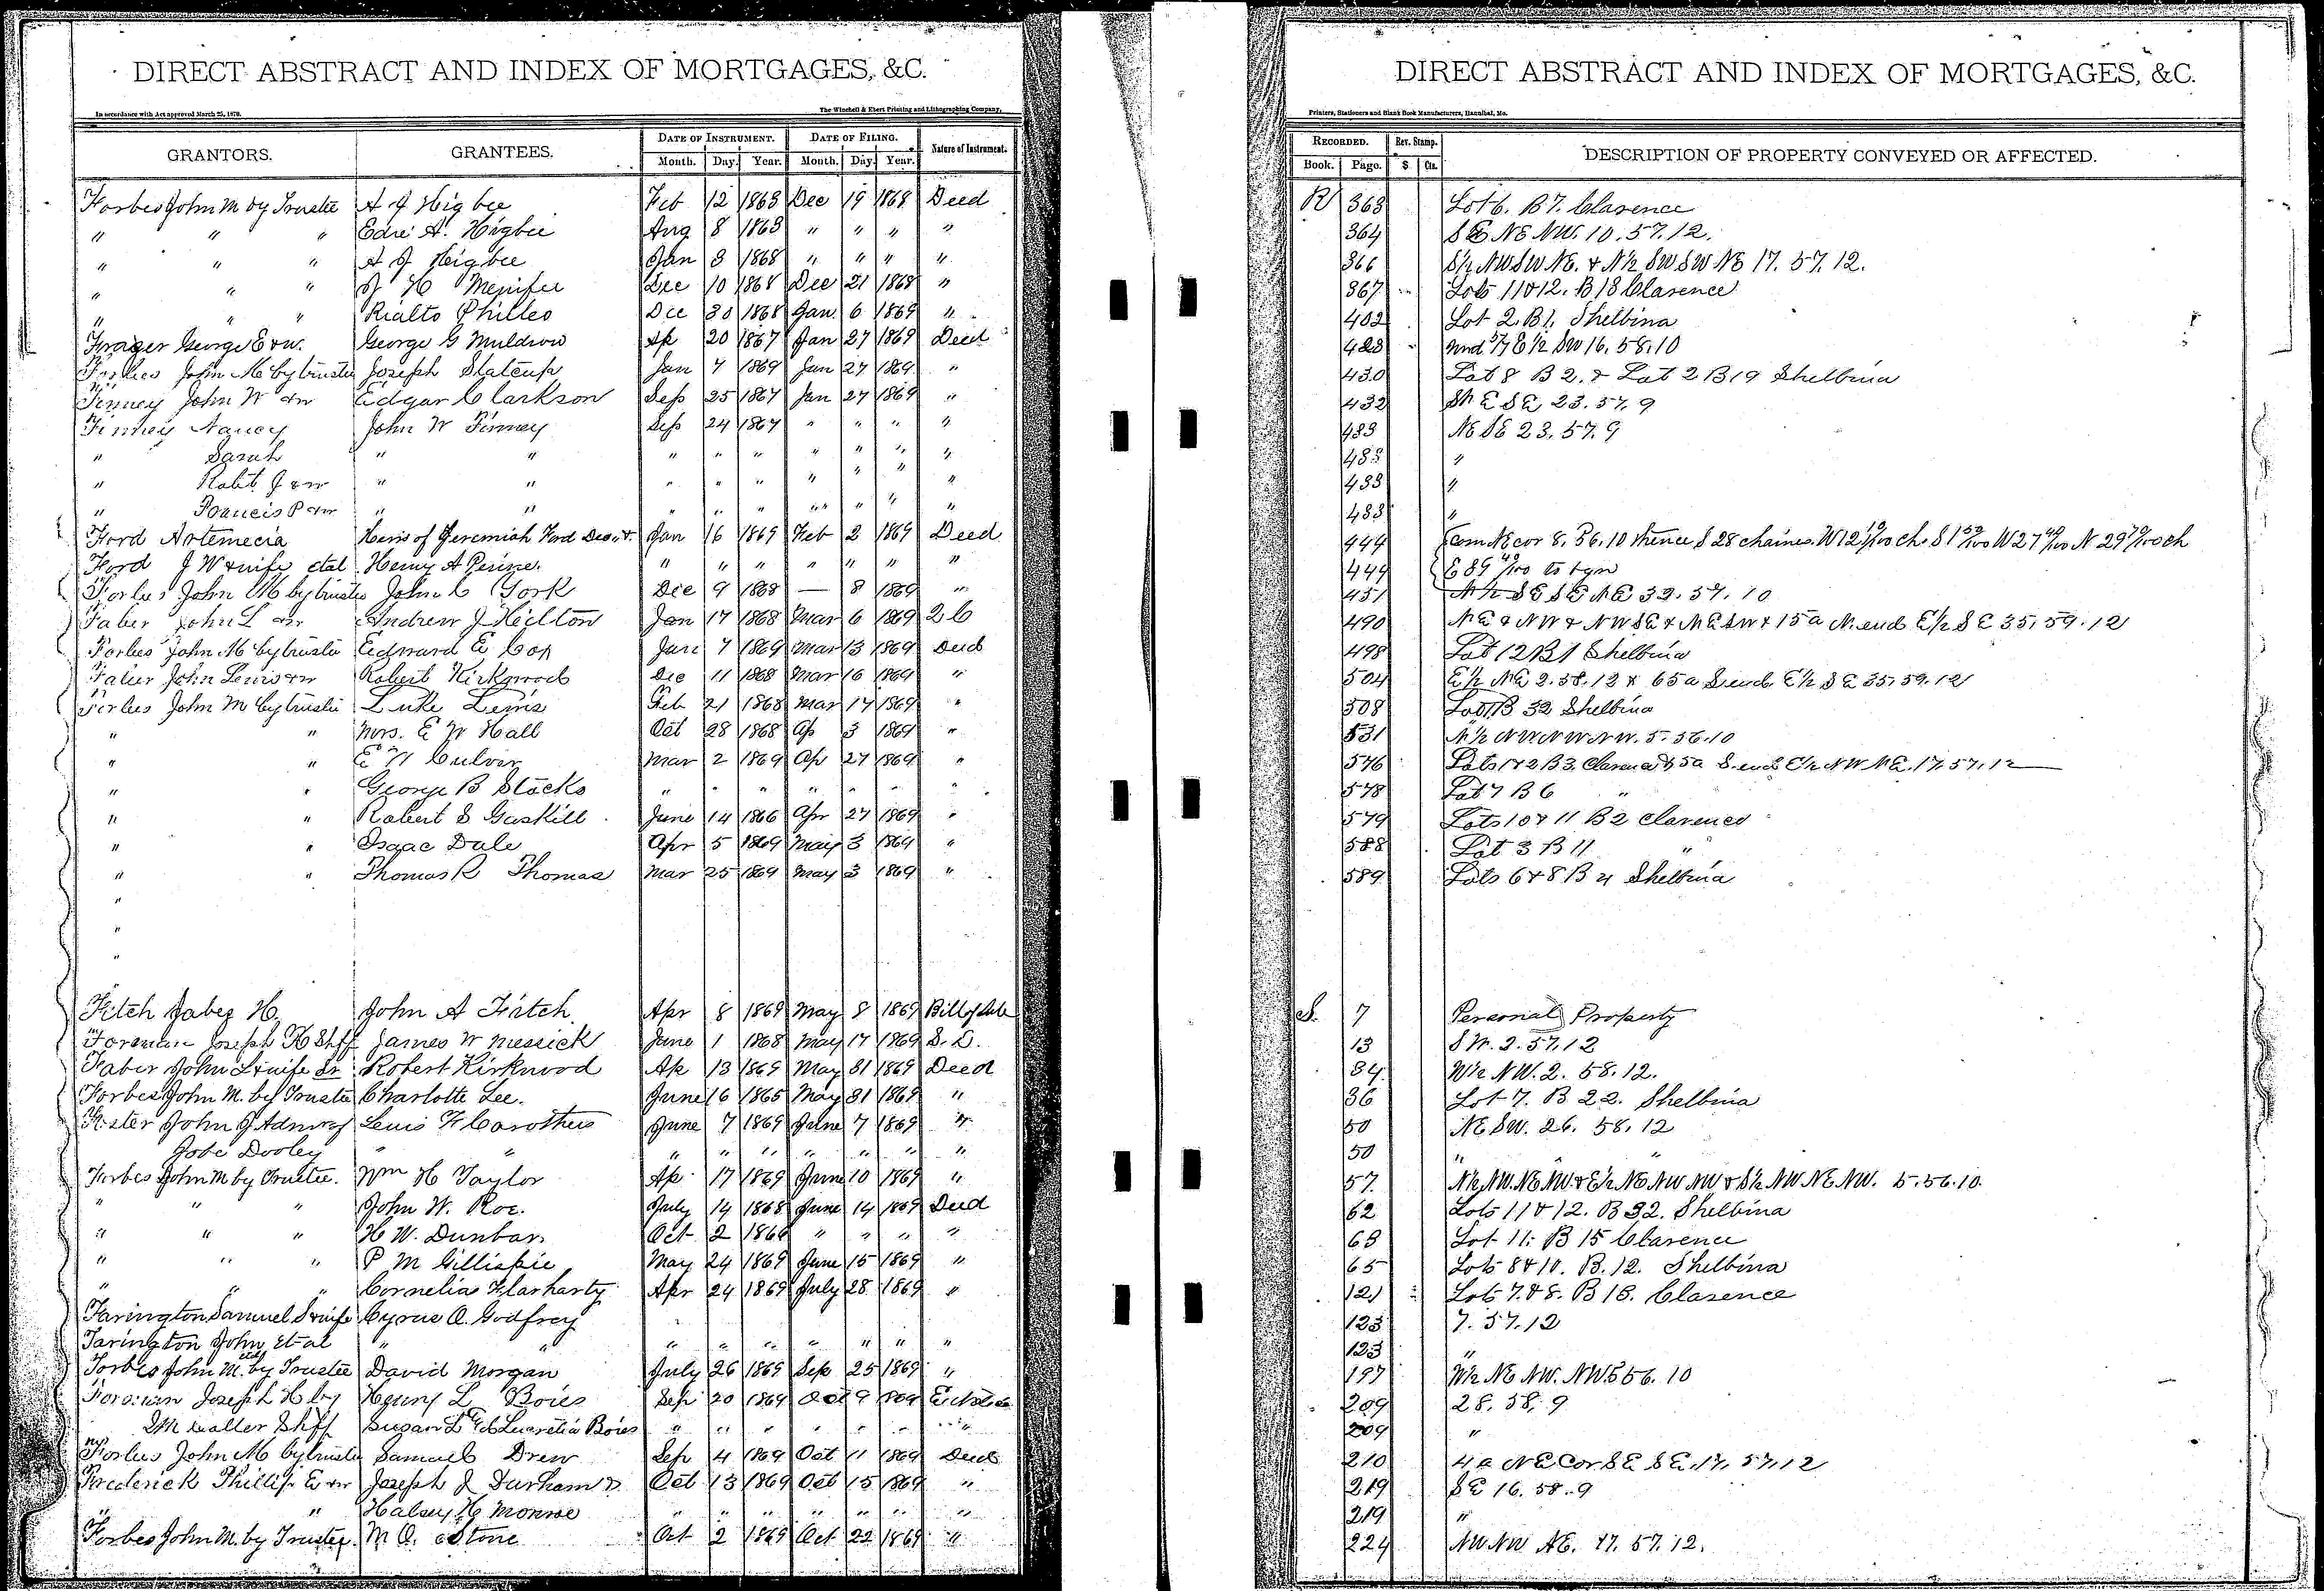 DIRECT ABSTRACT AND INDEX OF MORTGAGES, &C.
In accordance with Act approved March 25, 1870.
The Winchell & Ebert Printing and Lithographing Company,
GRANTORS. GRANTEES. DATE OF INSTRUMENT. DATE OF FILING. Nature of Instrument.
Month. Day. Year. Month. Day. Year.
Forbes John M by Trustee A J Higbee Feb 12 1868 Dec 19 1868 Deed
" " " Edri A. Higbee Aug 8 1863 " " " "
" " " A J Higbee Jan 8 1868 " " " "
" " " J H Menifee Dec 10 1868 Dec 21 1868 "
" " " Rialto Philleo Dec 30 1868 Jan. 6 1869 "
Frager George E & w. George G Muldrow Ap 20 1867 Jan 27 1869 Deed
Forbes John M by trustee Joseph Slatcup Jan 7 1869 Jan 27 1869 "
Finney John W & w Edgar Clarkson Sep 25 1867 Jan 27 1869 "
Finney Nancy John W Finney Sep 24 1867 " " " "
" Sarah " " " " " " " " "
" Robt J & w " " " " " " " " "
" Francis P & w " " " " " " " " "
Ford Artemecia Heirs of Jeremiah Ford Dec'd. Jan 16 1869 Feb 2 1869 Deed
Ford J W & wife etal Henry A Perine. " " " " " " "
Forbes John M by trustee John C York Dec 9 1868 — 8 1869 "
Faber John L & w Andrew J Hilton Jan 17 1868 Mar 6 1869 2 C
Forbes John M by trustee Edward E Cop Jan 7 1869 Mar 13 1869 Deed
Faber John Lewis & w Robert Kirkwood Dec 11 1868 Mar 16 1869 "
Forbes John M by trustee Luke Lewis Feb 21 1868 Mar 17 1869 "
" " Mrs. E W Hall Oct 28 1868 Ap 3 1869 "
" " E W Culver Mar 2 1869 Ap 27 1869 "
" " George B Stocks " " " " " " "
" " Robert S Gaskill June 14 1866 Apr 27 1869 "
" " Isaac Dale Apr 5 1869 May 3 1869 "
" " Thomas R Thomas Mar 25 1869 May 3 1869 "
"
"
"
Fitch Jabez H. John A Fitch Apr 8 1869 May 8 1869 Bill of Sale
Foreman Joseph H Shff James W Messick June 1 1868 May 17 1869 S. D.
Faber John L & wife Sr Robert Kirkwood Ap 13 1869 May 31 1869 Deed
Forbes John M. by Trustee Charlotte Lee. June 16 1865 May 31 1869 "
Foster John J Admr of Louis F Carothers June 7 1869 June 7 1869 "
Gobe Dooley " " " " " " " " "
Forbes John M by Trustee. Wm H Taylor Ap 17 1869 June 10 1869 "
" " " John W. Roe. July 14 1868 June 14 1869 Deed
" " " H W. Dunbar Oct 2 1866 " " " "
" " " P M Gillispie May 24 1869 June 15 1869 "
" " " Cornelias Flarharty Apr 24 1869 July 28 1869 "
Farington Samuel S & wife Cyrus O. Godfrey
Farington John et al " " " " " " " "
Forbes John M. etal by Trustee David Morgan July 26 1869 Sep 25 1869 "
Foreman Joseph H by Henry L Boies Sep 20 1869 Oct 9 1869
Shff Susan L & Lucretia Boies " " " " " " "
Forbes John M by trustee Samuel Drew Sep 4 1869 Oct 11 1869 Deed
Frederick Phillip E & w Joseph J Durham Oct 13 1869 Oct 15 1869 "
" " Halsey H Monroe " " " " " " "
Forbes John M. by Trustee. M. O. Stone Oct 2 1869 Oct 22 1869 "
DIRECT ABSTRACT AND INDEX OF MORTGAGES, &C.
Printers, Stationers and Blank Book Manufacturers, Hannibal, Mo.
RECORDED. Rev. Stamp. DESCRIPTION OF PROPERTY CONVEYED OR AFFECTED.
Book. Page. $ Cts.
R 363 Lot 6. B 7. Clarence
364 S E NE NW. 10. 57. 12.
366 S½ NW SW NE. & N½ SW SW NE 17. 57. 12.
367 Lots 11 & 12. B 18 Clarence
402 Lot 2. B 1. Shelbina
428 und 1/7 E ½ SW 16. 58. 10
430 Lot 8 B 2. & Lot 2 B 19 Shelbina
432 S½ E SE 23. 57. 9
433 NE SE 23. 57. 9
433 "
433 "
433 "
444 Com NE cor 8. 56. 10 thence S 28 chains. W 12 10/100 ch. S 1 50/100 W 27 40/100 N 29 70/100 ch
444 E 39 40/100 to bgn
451 N ½ SE SE NE 33. 57. 10
490 NE & NW & NW SE & NE SW & 15 a N. end E½ SE 35. 59. 12
498 Lot 12 B 1 Shelbina
504 E ½ NE 2. 58. 12 & 65 a S. end E ½ SE 35. 59. 12
508 Lot 1 B 32 Shelbina
531 N ½ NW NW NW. 5. 56. 10
576 Lots 1 & 2 B 3. Clarence & 5a S. end E ½ NW NE. 17. 57. 12
578 Lot 7 B 6 "
579 Lots 10 & 11 B 2 Clarence
588 Lot 3 B 11 "
589 Lots 6 & 8 B 4 Shelbina
S. 7 Personal Property
13 S W. 2. 57. 12
34 W½ NW. 2. 58. 12.
36 Lot 7. B 22. Shelbina
50 NE SW. 26. 58. 12
50 " "
57 N½ NW. NE NW. & E½ NE NW NW & S½ NW NE NW. 5. 56. 10.
62 Lots 11 & 12. B 32. Shelbina
63 Lot 11. B 15 Clarence
65 Lots 8 & 10. B. 12. Shelbina
121 Lots 7. & 8. B 18. Clarence
123 7. 57. 12
123 "
197 W½ NE NW. NW. 5 56. 10
209 28. 58. 9
209 "
210 4 a NE Cor SE SE. 17. 57. 12
219 SE 16. 58. 9
219 "
224 NW NW NE. 17. 57. 12.